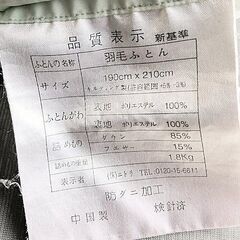 品質表示 新基準
ふとんの名称 羽毛ふとん
サイズ 190cm x 210cm
キルティング製(許容範囲+5% -3%)
ふとんがわ 表地 ポリエステル 100%
裏地 ポリエステル 100%
詰めもの ダウン 85%
フェザー 15%
詰めもの重量 1.8Kg
表示者 (株)ニトリ TEL: 0120-15-6611
防ダニ加工
中国製 検針済